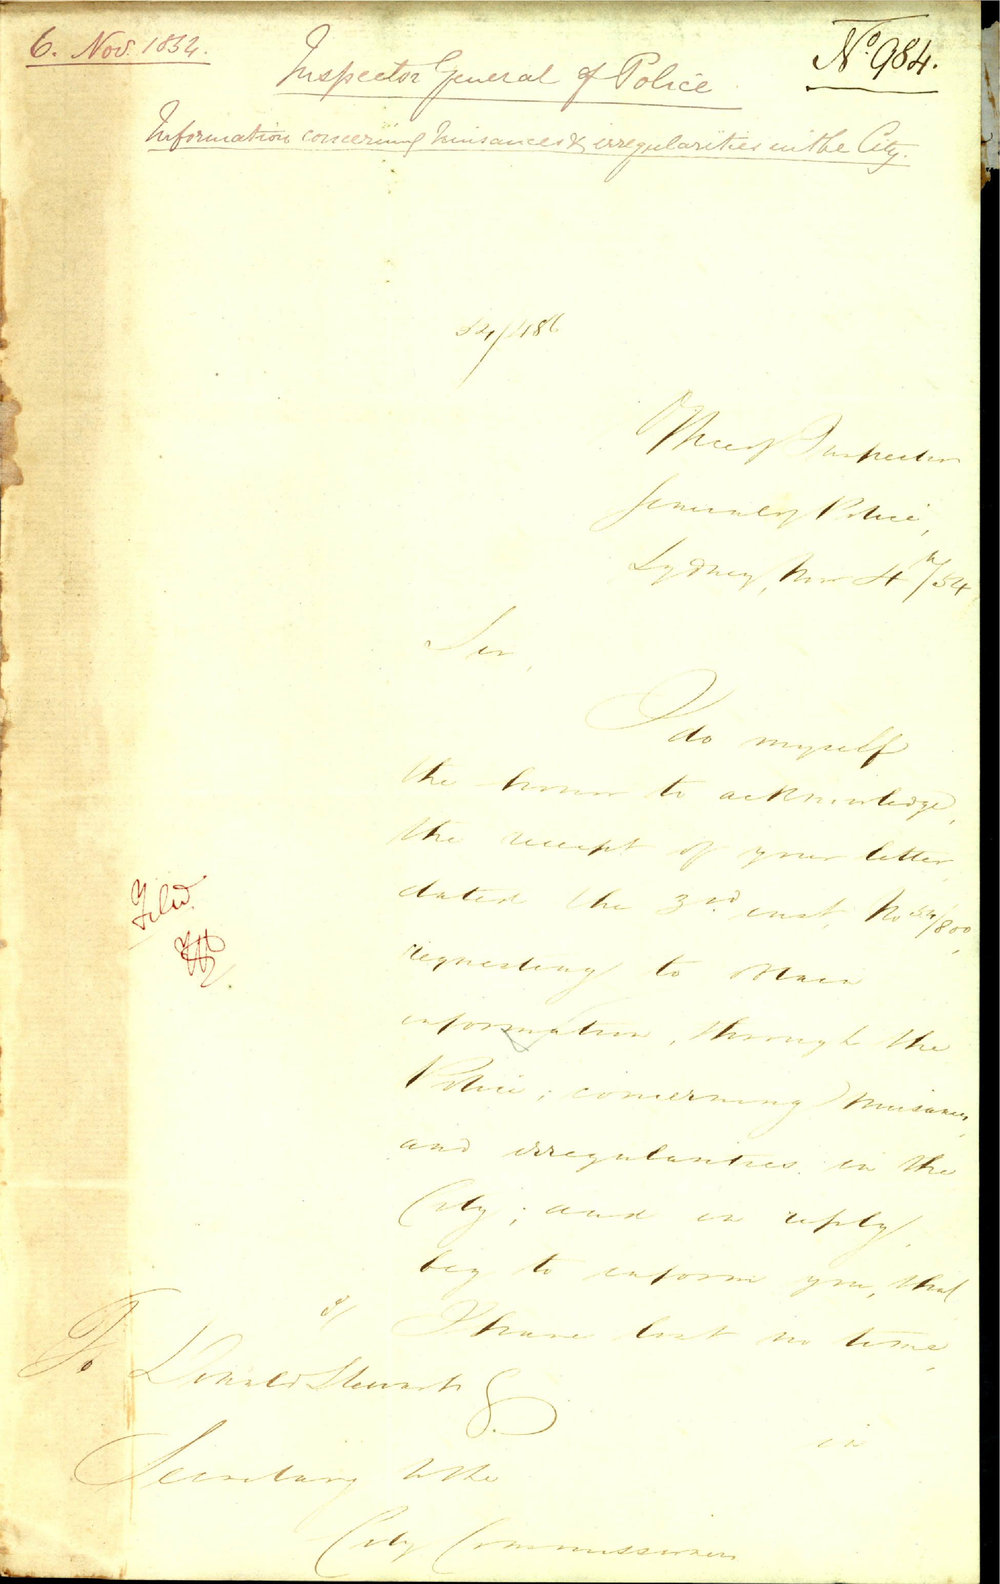 6. Nov. 1854.
No. 984.
Inspector General of Police
Information concerning Nuisances & irregularities in the City.
54/1186
Office of Inspector
General of Police,
Sydney, Nov 4th/54
Sir,
I do myself
the honor to acknowledge,
the receipt of your letter,
dated the 3rd inst, No 54/800,
requesting to obtain
information, through the
Police; concerning Nuisances,
and irregularities in the
City; and in reply,
beg to inform you, that
I have lost no time,
in
To Donald Stewart
Secretary to the
City Commissioners